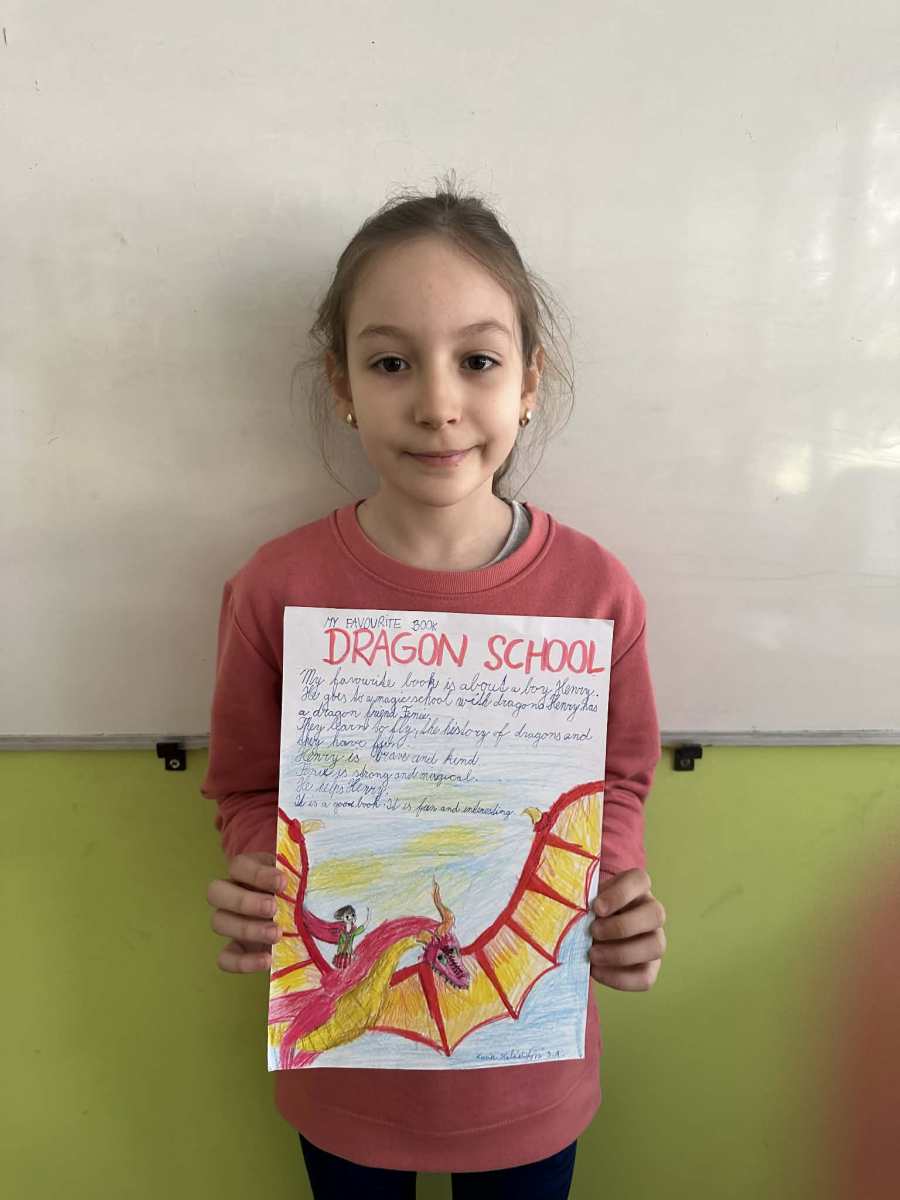 MY FAVOURITE BOOK
DRAGON SCHOOL
My favourite book is about a boy Henry.
He goes to a magic school with dragons. Henry has
a dragon friend
They learn to fly, the history of dragons and
they have fun.
Henry is brave and kind.
is strong and magical.
He helps Henry.
It is a good book. It is fun and interesting.
3.A